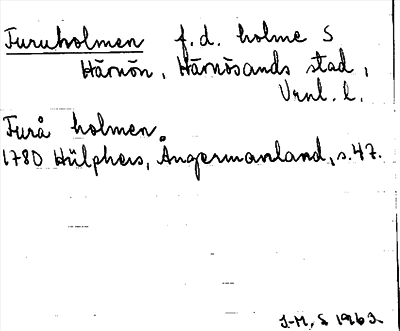 Furuholmen f.d. holme S
Härnön, Härnösands stad,
Vrnl. l.
Furå holmen.
1780 Hülphers, Ångermanland, s. 47.
J-M, S 1963.